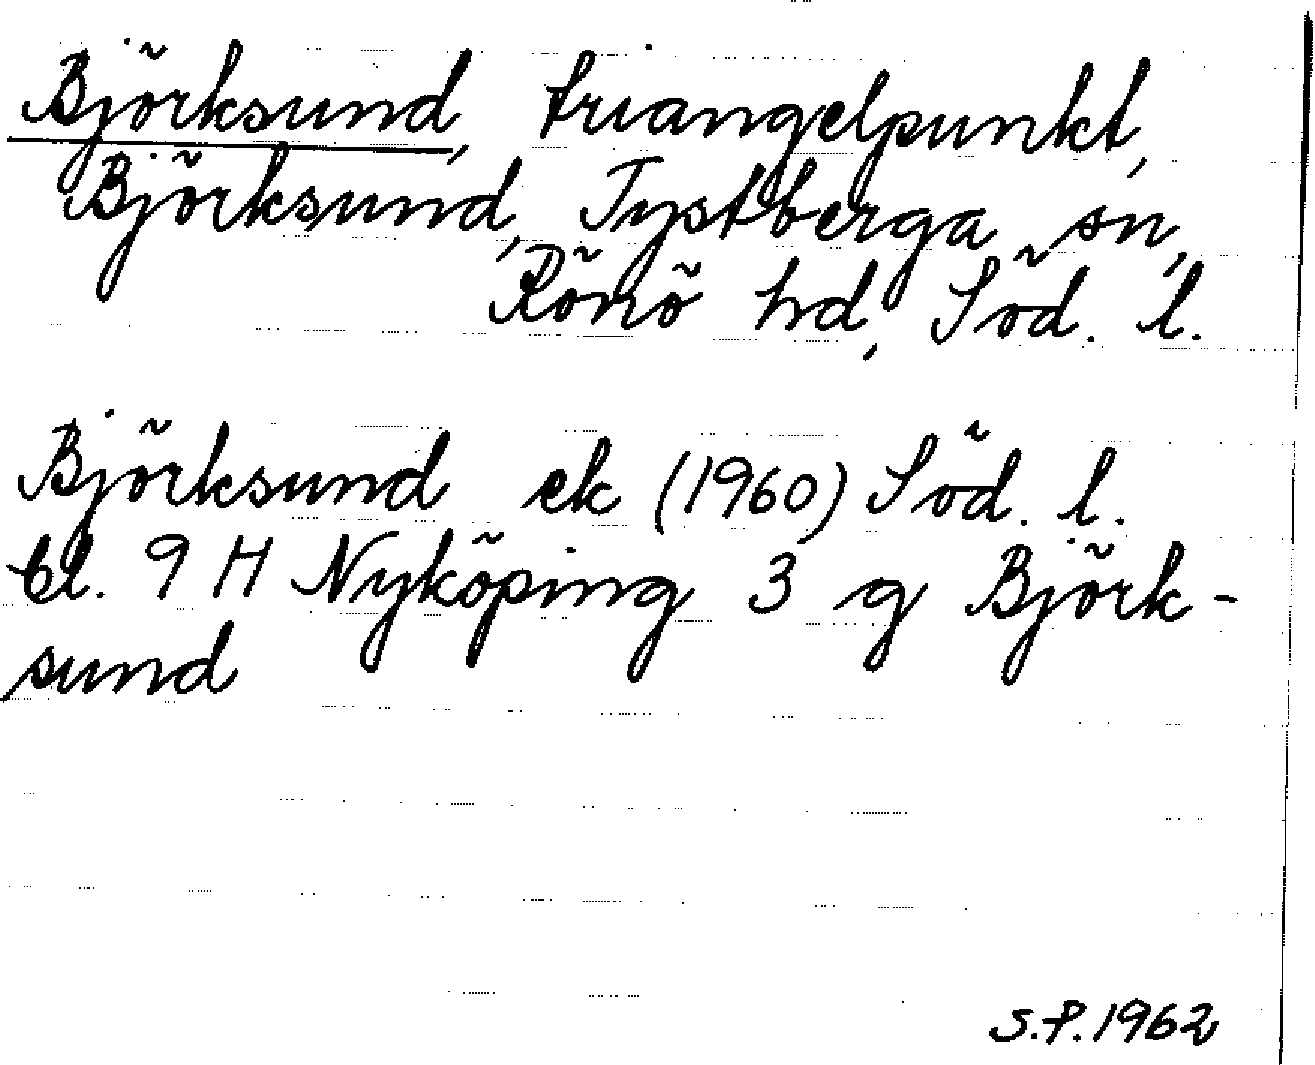 Björksund, triangelpunkt,
Björksund, Tystberga sn,
Rönö hd, Söd. l.
Björksund ek (1960) Söd. l.
bl. 9 H Nyköping 3 g Björk-
sund
S.P. 1962